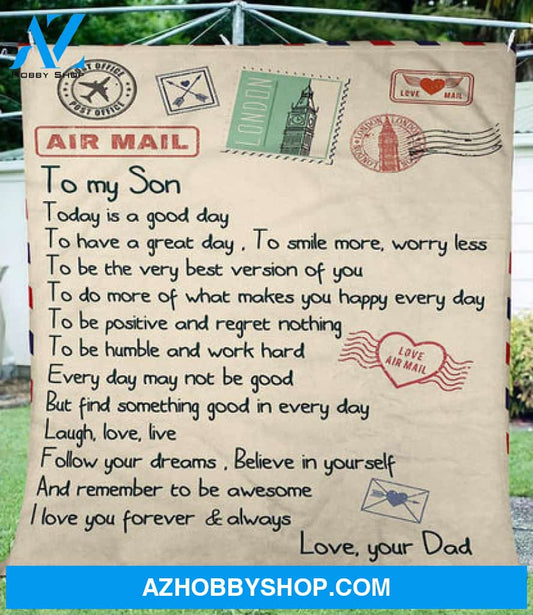 AZ
HOBBY SHOP
POST OFFICE
POST OFFICE
LONDON
LOVE MAIL
LONDON
LONDON
AIR MAIL
To my Son
Today is a good day
To have a great day , To smile more, worry less
To be the very best version of you
To do more of what makes you happy every day
To be positive and regret nothing
To be humble and work hard
LOVE
AIR MAIL
Every day may not be good
But find something good in every day
Laugh, love, live
Follow your dreams , Believe in yourself
And remember to be awesome
I love you forever & always
Love, your Dad
AZHOBBYSHOP.COM